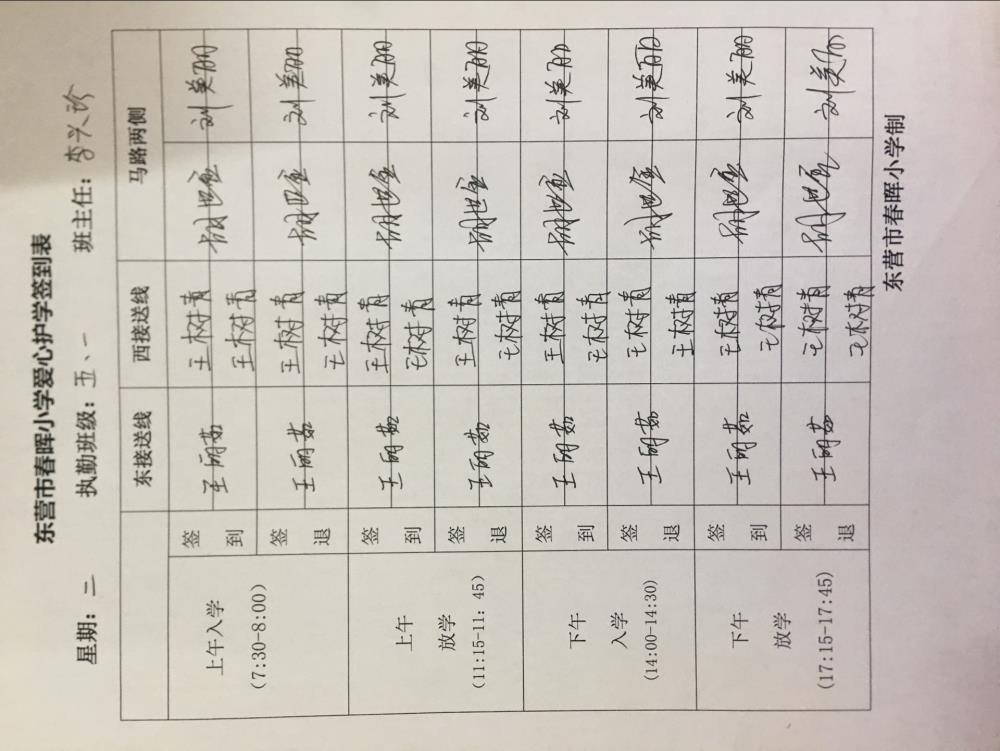 东营市春晖小学爱心护学签到表
星期：二 执勤班级：五、一 班主任：李兴珍
东接送线 西接送线 马路两侧
上午入学
(7:30-8:00)
签到 王丽茹 王树青 王树青 胡世全 刘美丽
签退 王丽茹 王树青 王树青 胡世全 刘美丽
上午
放学
(11:15-11：45)
签到 王丽茹 王树青 王树青 胡世全 刘美丽
签退 王丽茹 王树青 王树青 胡世全 刘美丽
下午
入学
(14:00-14:30)
签到 王丽茹 王树青 王树青 胡世全 刘美丽
签退 王丽茹 王树青 王树青 胡世全 刘美丽
下午
放学
(17:15-17:45)
签到 王丽茹 王树青 王树青 胡世全 刘美丽
签退 王丽茹 王树青 王树青 胡世全 刘美丽
东营市春晖小学制